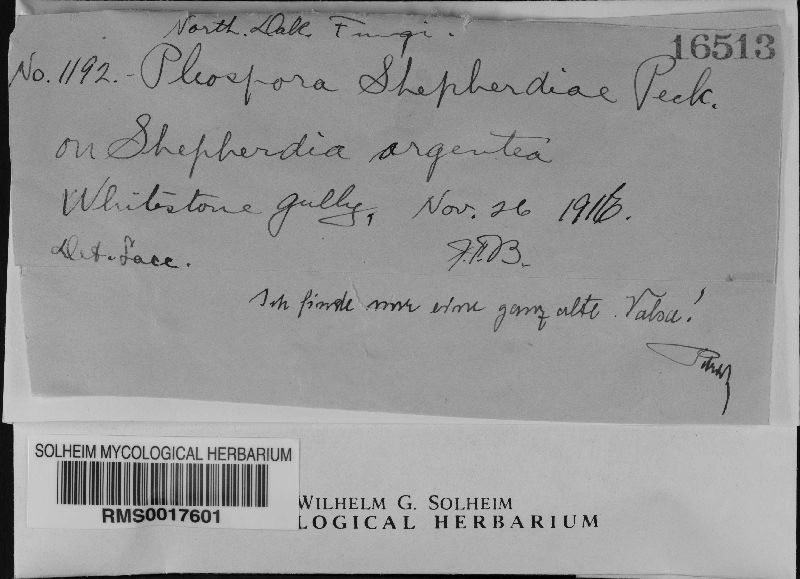 North. Dak. Fungi.
16513
No. 1192. - Pleospora Shepherdiae Peck.
on Shepherdia argentea
Whitestone gully, Nov. 26 1916.
Det. Sacc. J.F.B.
Ich finde nur eine ganz alte Valsa!
Petrak
SOLHEIM MYCOLOGICAL HERBARIUM
RMS0017601
WILHELM G. SOLHEIM
LOGICAL HERBARIUM